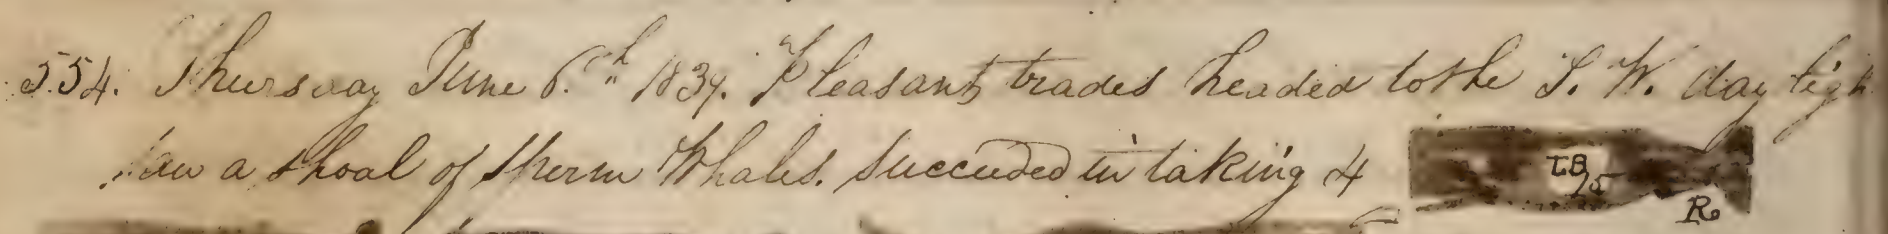 554. Thursday June 6.th 1839. Pleasant trades headed to the S. W. day ligh
saw a shoal of Sperm Whales. Succeeded in taking 4